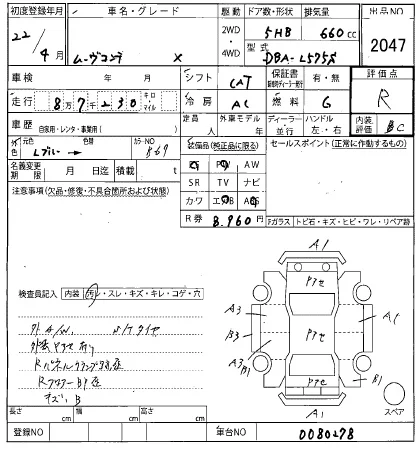 初度登録年月 車名・グレード 駆動 ドア数・形状 排気量 出品NO
22/4月 ムーヴコンテ X 2WD 4WD 5HB 660cc 2047
型式 DBA-L575S
車検 年 月 シフト CAT 保証書 有・無 評価点
走行 8万7千230 キロ・マイル 冷房 AC 燃料 G R
車歴 自家用・レンタ・事業用( ) 定員 人 外車モデル 年 ディーラー・並行 ハンドル 左・右 内装評価 BC
外色 元色 Lブルー 色替 カラーNO
装備品(純正品に限る) セールスポイント(正常に作動するもの)
名義変更期限 月 日迄 積載 t
PS PW AW
SR TV ナビ
カワ エアB AB
R券 8,960円
注意事項(欠品・修復・不具合箇所および状態)
Fガラス トビ石・キズ・ヒビ・ワレ・リペア跡
検査員記入 内装 汚レ・スレ・キズ・キレ・コゲ・穴
外A/W S/Tタイヤ
キズB
A1
アセ
アセ
A3
B3
A3
B1
アセ
B1
A1
スペア
長さ cm 幅 cm 高さ cm
登録NO 車台NO 0080278